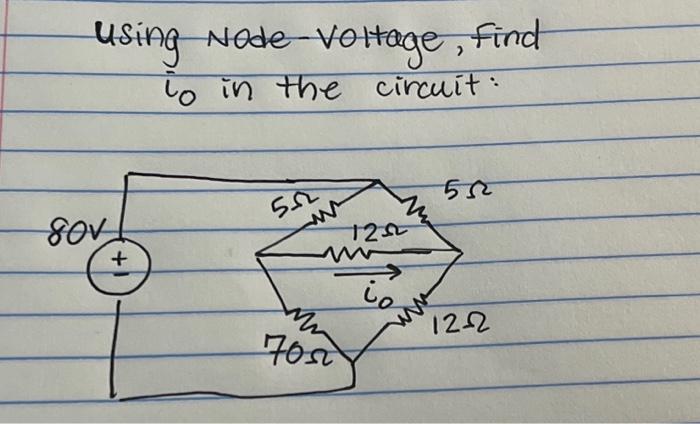 using Node-Voltage, find
io in the circuit:
5Ω
5Ω
80V
12Ω
+
-
io
12Ω
70Ω